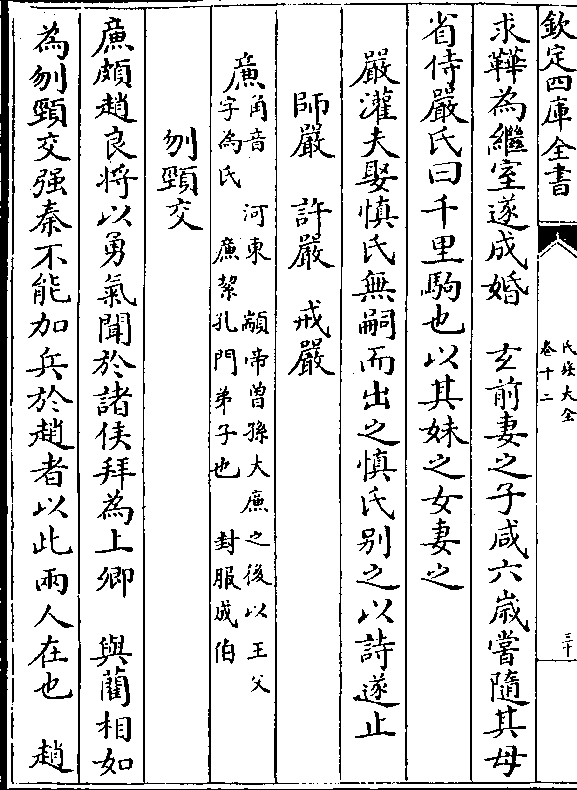 欽定四庫全書
氏族大全
卷十二
三十
求韡為繼室遂成婚　玄前妻之子咸六歲嘗隨其母
省侍嚴氏曰千里駒也以其妹之女妻之
嚴灌夫娶慎氏無嗣而出之慎氏别之以詩遂止
師嚴　許嚴　戒嚴
廉
角音　河東　顓帝曾孫大廉之後以王父
字為氏　廉絜孔門弟子也　封服成伯
刎頸交
廉頗趙良将以勇氣聞於諸侯拜為上卿　與藺相如
為刎頸交强秦不能加兵於趙者以此兩人在也　趙